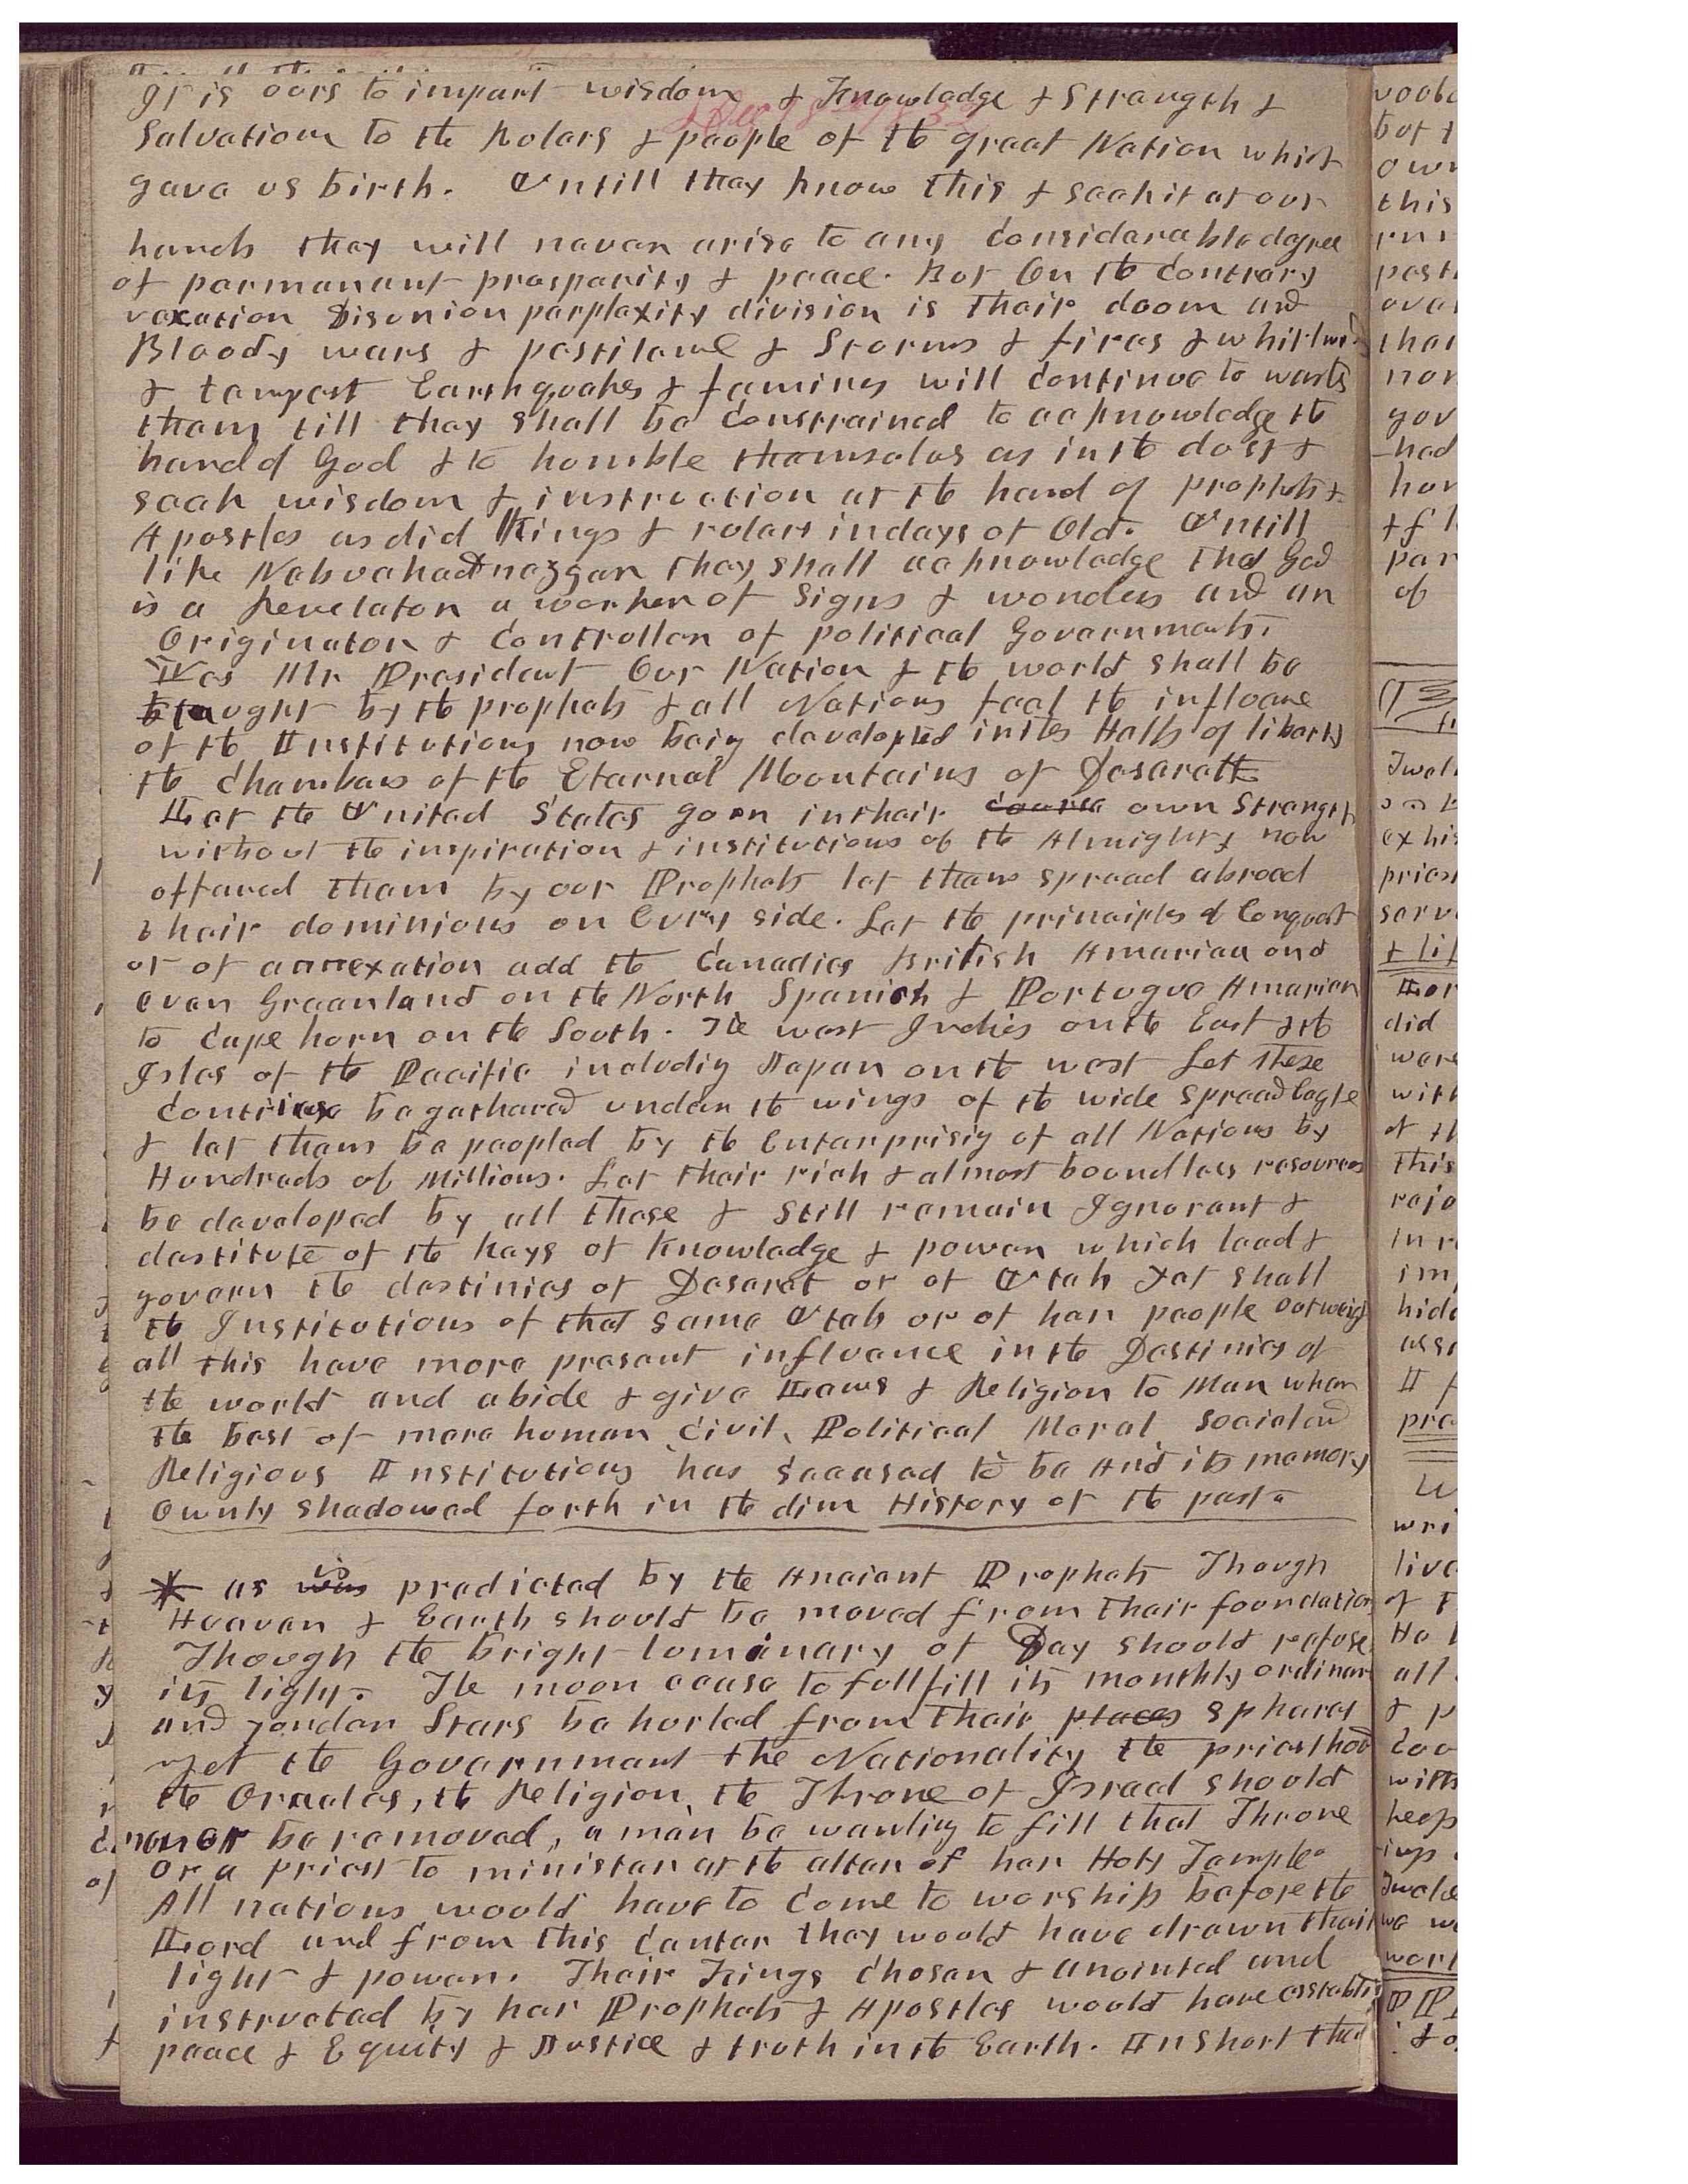 It is ours to impart wisdom & Knowledge & Strength &
Salvation to the Rulers & people of the great Nation which
gave us birth. Untill they know this & seek it at our
hands they will never arise to any considerable degree
of permanant prosperity & peace. But On the contrary
vexation Disunion perplexity division is their doom and
Bloody wars & pestilence & Storms & fires & whirlwind
& tempest Earthquakes & famines will continue to waste
them till they shall be constrained to acknowledge the
hand of God & to humble themselves as in the dust &
seek wisdom & instruction at the hand of prophets &
Apostles as did Kings & rulers in days of Old. Untill
like Nebuchadnezzer they shall acknowledge that God
is a Revelator a worker of Signs & wonders and an
Originator & Controller of political Governments.
Yes Mr President Our Nation & the world shall be
taught by the prophets & all Nations feel the influence
of the Institutions now being developed in the Halls of liberty
the chambers of the Eternal Mountains of Deseret
Let the United States go on in their course own Strength
without the inspiration & institutions of the Almighty now
offered them by our Prophets let them spread abroad
their dominions on Every side. Let the principles of Conquest
or of annexation add the Canadies British America and
even Greenland on the North Spanish & Portugue America
to Cape horn on the South. The west Indies on the East & the
Isles of the Pacific including Japan on the west Let these
be gathered under the wings of the wide spread Eagle
& let them be peopled by the Enterprising of all Nations by
Hundreds of Millions. Let their rich & almost boundless resources
be developed by all these & still remain Ignorant &
destitute of the keys of Knowledge & power which lead &
govern the destinies of Deseret or of Utah yet shall
the Institutions of that same Utah or of her people outweigh
all this have more present influence in the Destinies of
the world and abide & give Laws & Religion to Man when
the best of mere human Civil, Political Moral Social and
Religious Institutions has ceased to be And its memory
ownly shadowed forth in the dim History of the past
* as was is predicted by the Ancient Prophets Though
Heaven & Earth should be moved from their foundation
Though the bright luminary of Day should refuse
its light. The moon cease to fullfill its monthly ordinan
and yonder Stars be hurled from their places spheres
yet the Government the Nationality the priesthood
the Oracles, the Religion, the Throne of Israel should
never be removed, a man be wanting to fill that Throne
or a priest to minister at the alter of her Holy Temple
All nations would have to come to worship before the
Lord and from this center they would have drawn their
light & power. Their Kings chosen & anointed and
instructed by her Prophets & Apostles would have establis
peace & Equity & Justice & truth in the Earth. In short the